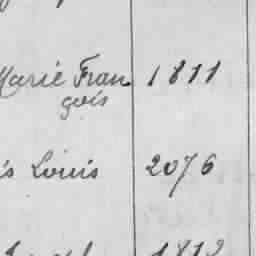 Marie Fran 1811
çois
is Louis 2076
1812